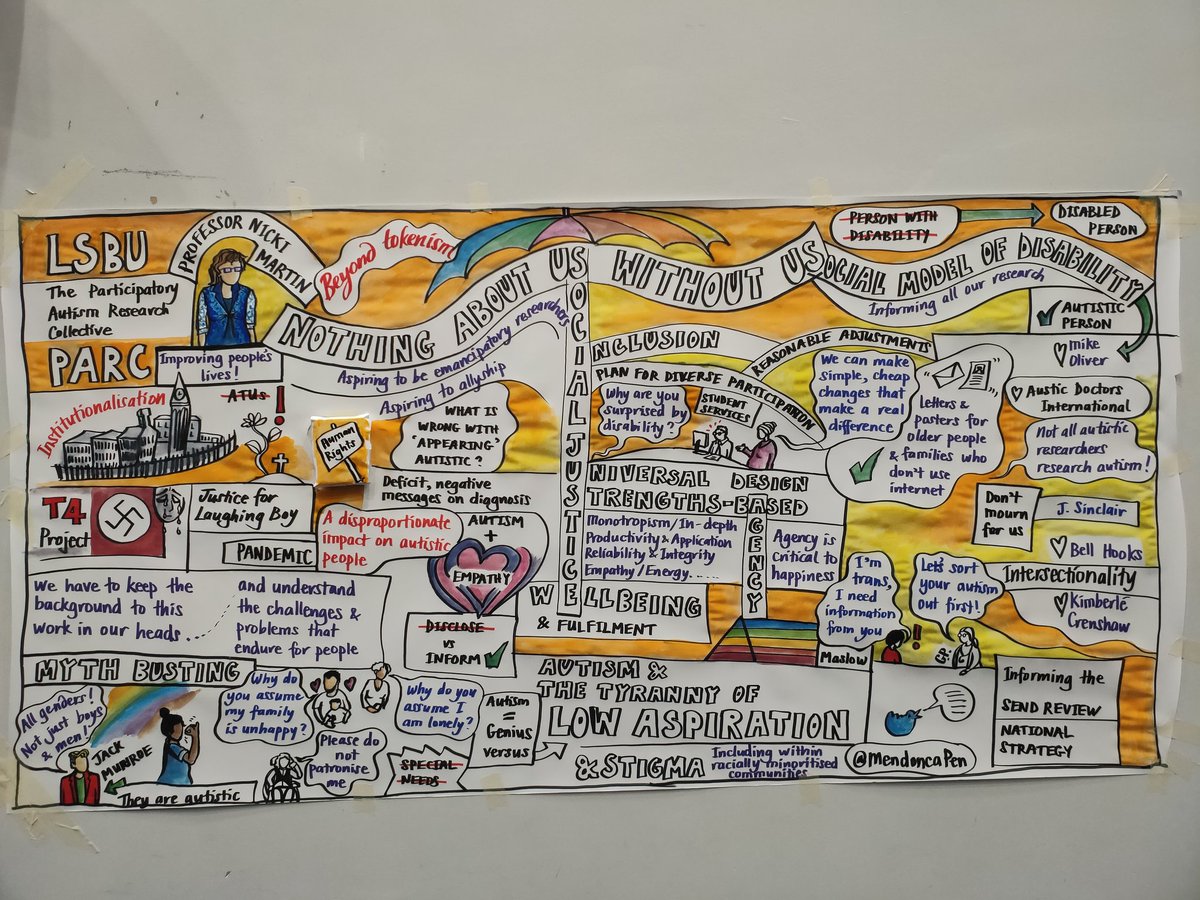 LSBU
The Participatory
Autism Research
Collective
PARC
PROFESSOR NICKI
MARTIN
Improving people's
lives!
Beyond tokenism
NOTHING ABOUT US WITHOUT US
Aspiring to be emancipatory researchers
Aspiring to allyship
SOCIAL MODEL OF DISABILITY
Informing all our research
PERSON WITH
DISABILITY
DISABLED
PERSON
AUTISTIC
PERSON
mike
Oliver
Institutionalisation
ATUs
!
Human
Rights
WHAT IS
WRONG WITH
'APPEARING'
AUTISTIC?
Deficit, negative
messages on diagnosis
T4
Project
Justice for
Laughing Boy
PANDEMIC
A disproportionate
impact on autistic
people
AUTISM
+
EMPATHY
We have to keep the
background to this
work in our heads...
and understand
the challenges &
problems that
endure for people
DISCLOSE
vs
INFORM
SOCIAL JUSTICE
INCLUSION
PLAN FOR DIVERSE PARTICIPATION
REASONABLE ADJUSTMENTS
Why are you
surprised by
disability?
STUDENT
SERVICES
We can make
simple, cheap
changes that
make a real
difference
" "
Letters &
pasters for
older people
& families who
don't use
internet
Austic Doctors
International
Not all autistic
researchers
research autism!
Don't
mourn
for us
J. Sinclair
Bell Hooks
Intersectionality
Kimberlé
Crenshaw
UNIVERSAL DESIGN
STRENGTHS-BASED
Monotropism/In-depth
Productivity & Application
Reliability & Integrity
Empathy/Energy.....
AGENCY
Agency is
critical to
happiness
WELLBEING
& FULFILMENT
Maslow
I'm
trans,
I need
information
from you
Let's sort
your autism
out first!
!
GP
MYTH BUSTING
All genders!
Not just boys
& men!
JACK
MUNROE
They are autistic
Why do
you assume
my family
is unhappy?
Please do
not
patronise
me
Why do you
assume I
am lonely?
SPECIAL
NEEDS
Autism
=
Genius
versus
AUTISM &
THE TYRANNY OF
LOW ASPIRATION
& STIGMA
Including within
racially minoritised
communities
@MendoncaPen
Informing the
SEND REVIEW
NATIONAL
STRATEGY